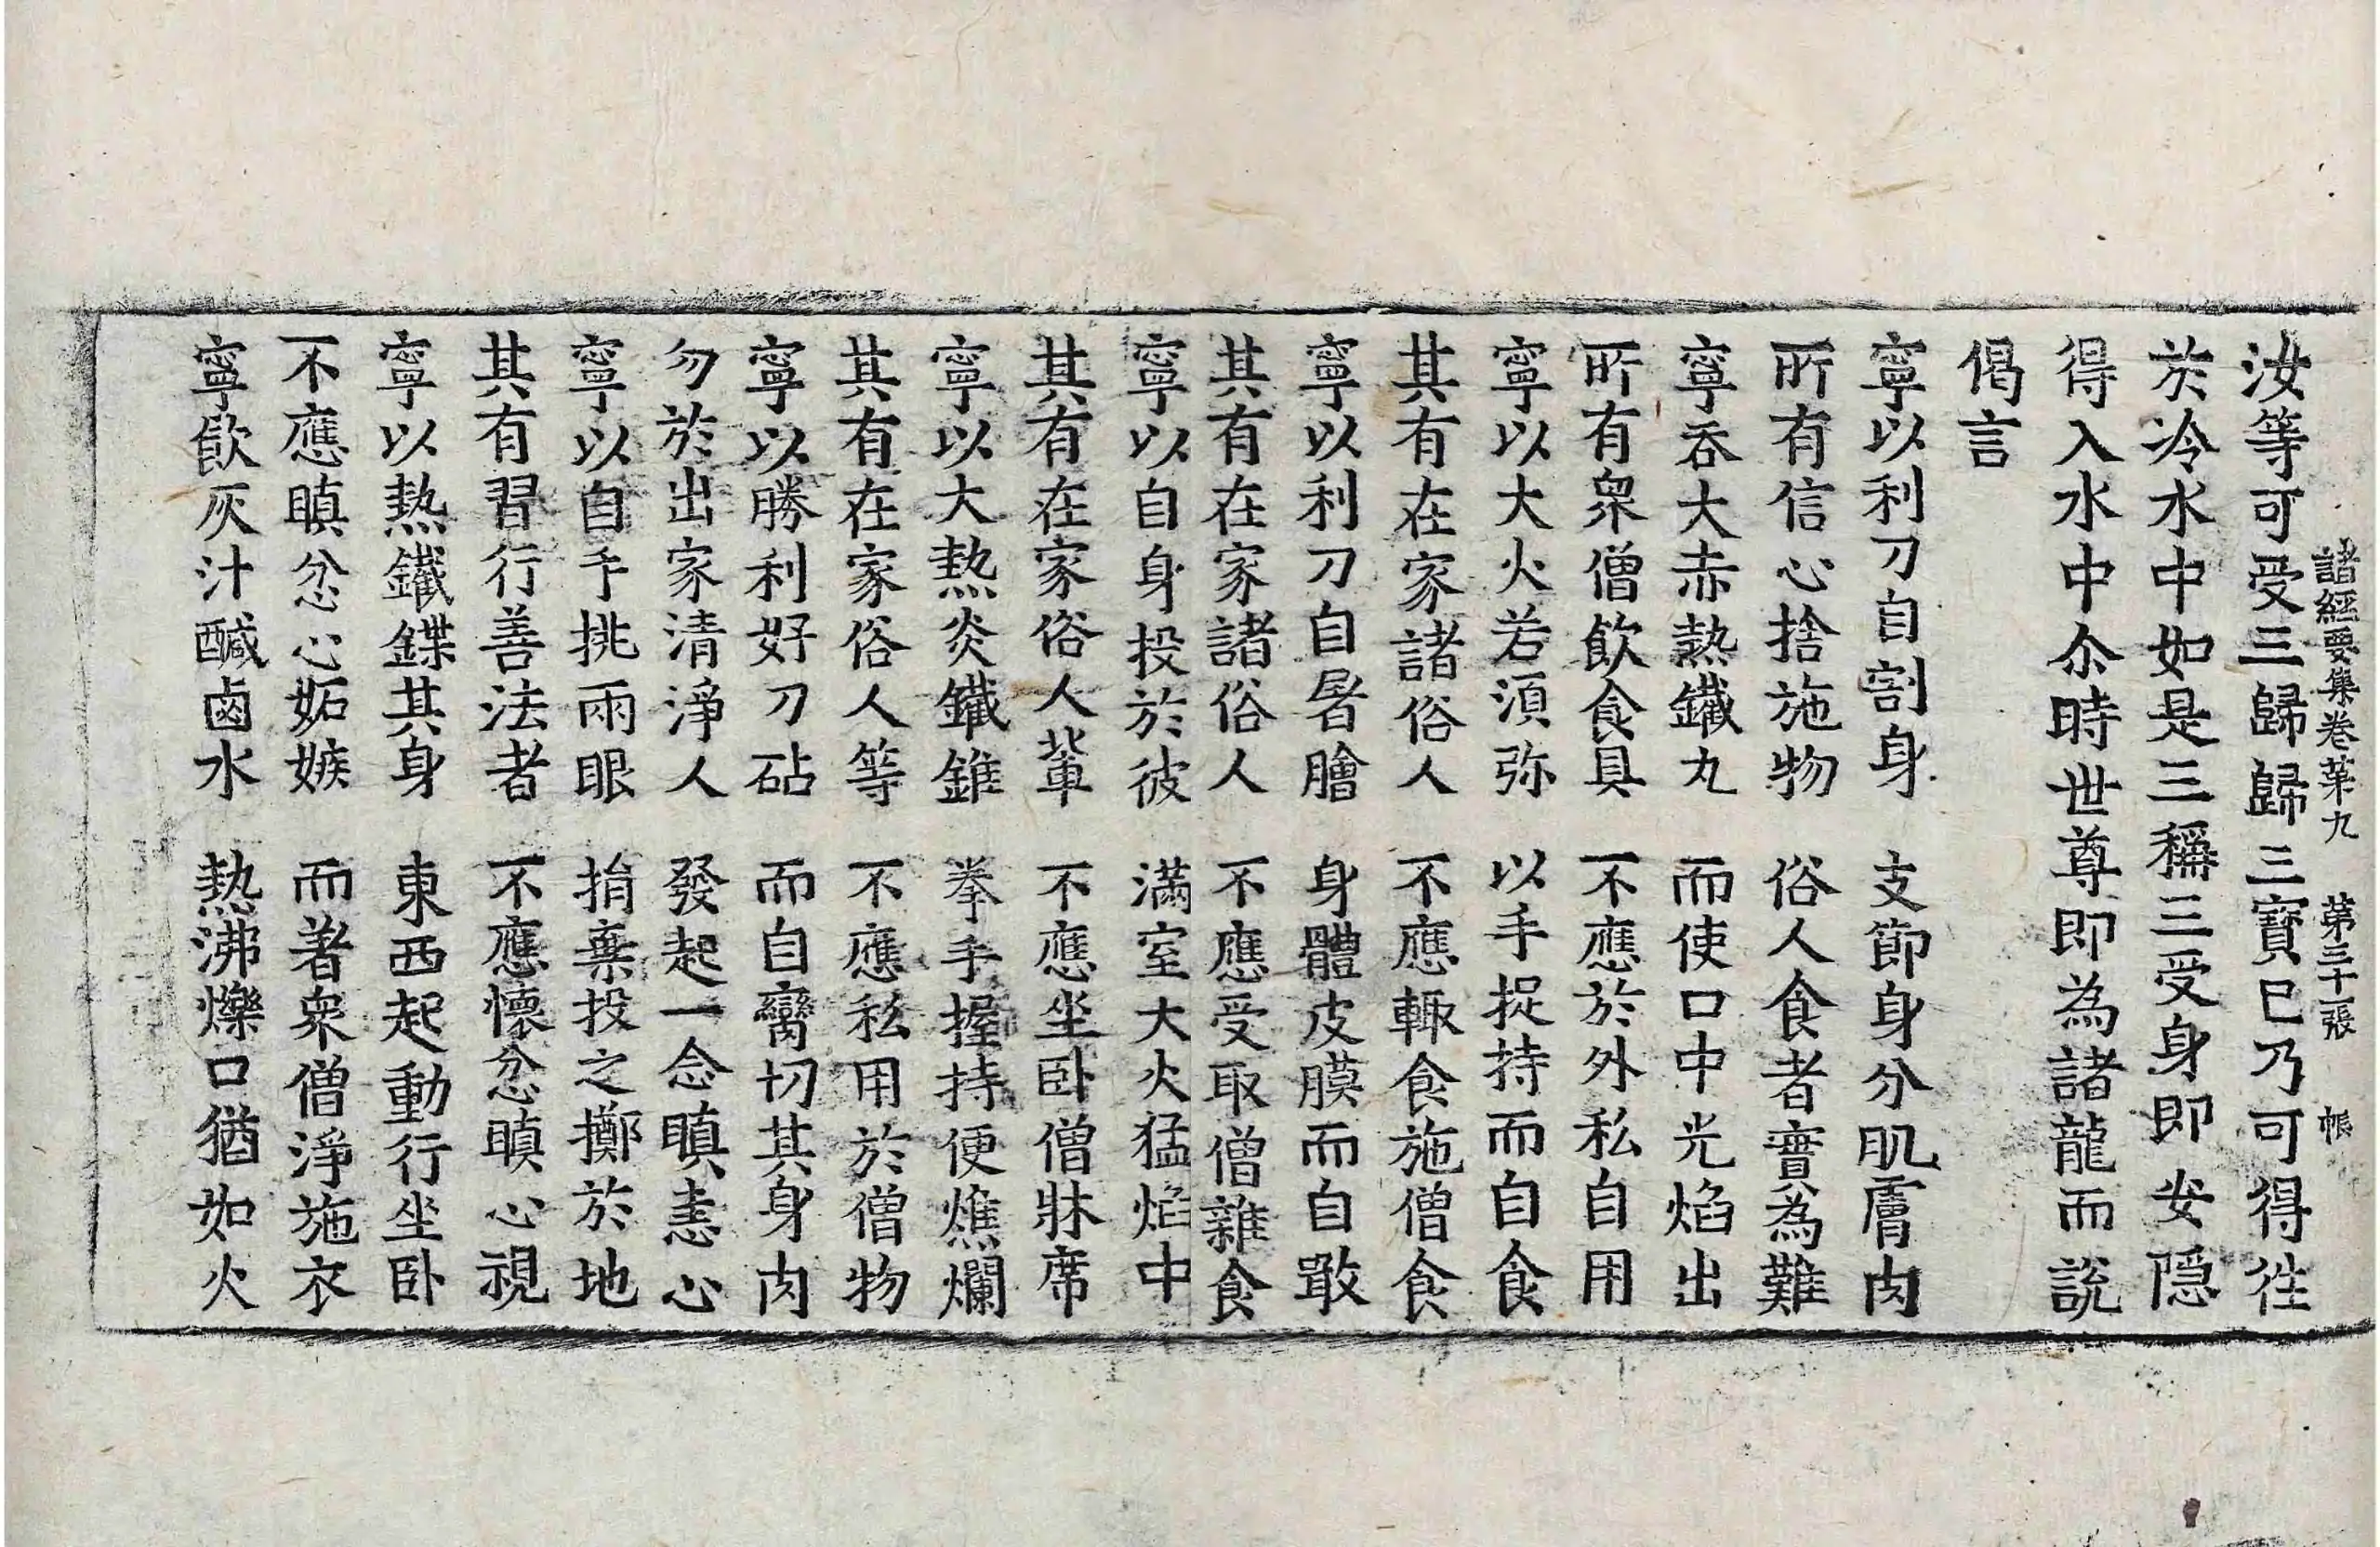 諸經要集卷苐九　苐三十張　帳
汝等可受三歸歸三寶已乃可得往
於冷水中如是三稱三受身即安隱
得入水中尒時世尊即為諸龍而說
偈言
寧以利刀自割身　支節身分肌膚肉
所有信心捨施物　俗人食者實為難
寧吞大赤熱鐵丸　而使口中光焰出
所有衆僧飲食具　不應於外私自用
寧以大火若湏弥　以手捉持而自食
其有在家諸俗人　不應輙食施僧食
寧以利刀自屠膾　身體皮膜而自噉
其有在家諸俗人　不應受取僧雜食
寧以自身投於彼　滿室大火猛焰中
其有在家俗人輩　不應坐卧僧牀席
寧以大熱炎鐵錐　拳手握持便燋爛
其有在家俗人等　不應私用於僧物
寧以勝利好刀砧　而自臠切其身肉
勿於出家清淨人　發起一念瞋恚心
寧以自手挑兩眼　捐棄投之擲於地
其有習行善法者　不應懷忿瞋心視
寧以熱鐵鍱其身　東西起動行坐卧
不應瞋忿心妬嫉　而著衆僧淨施衣
寧飲灰汁醎鹵水　熱沸爍口猶如火